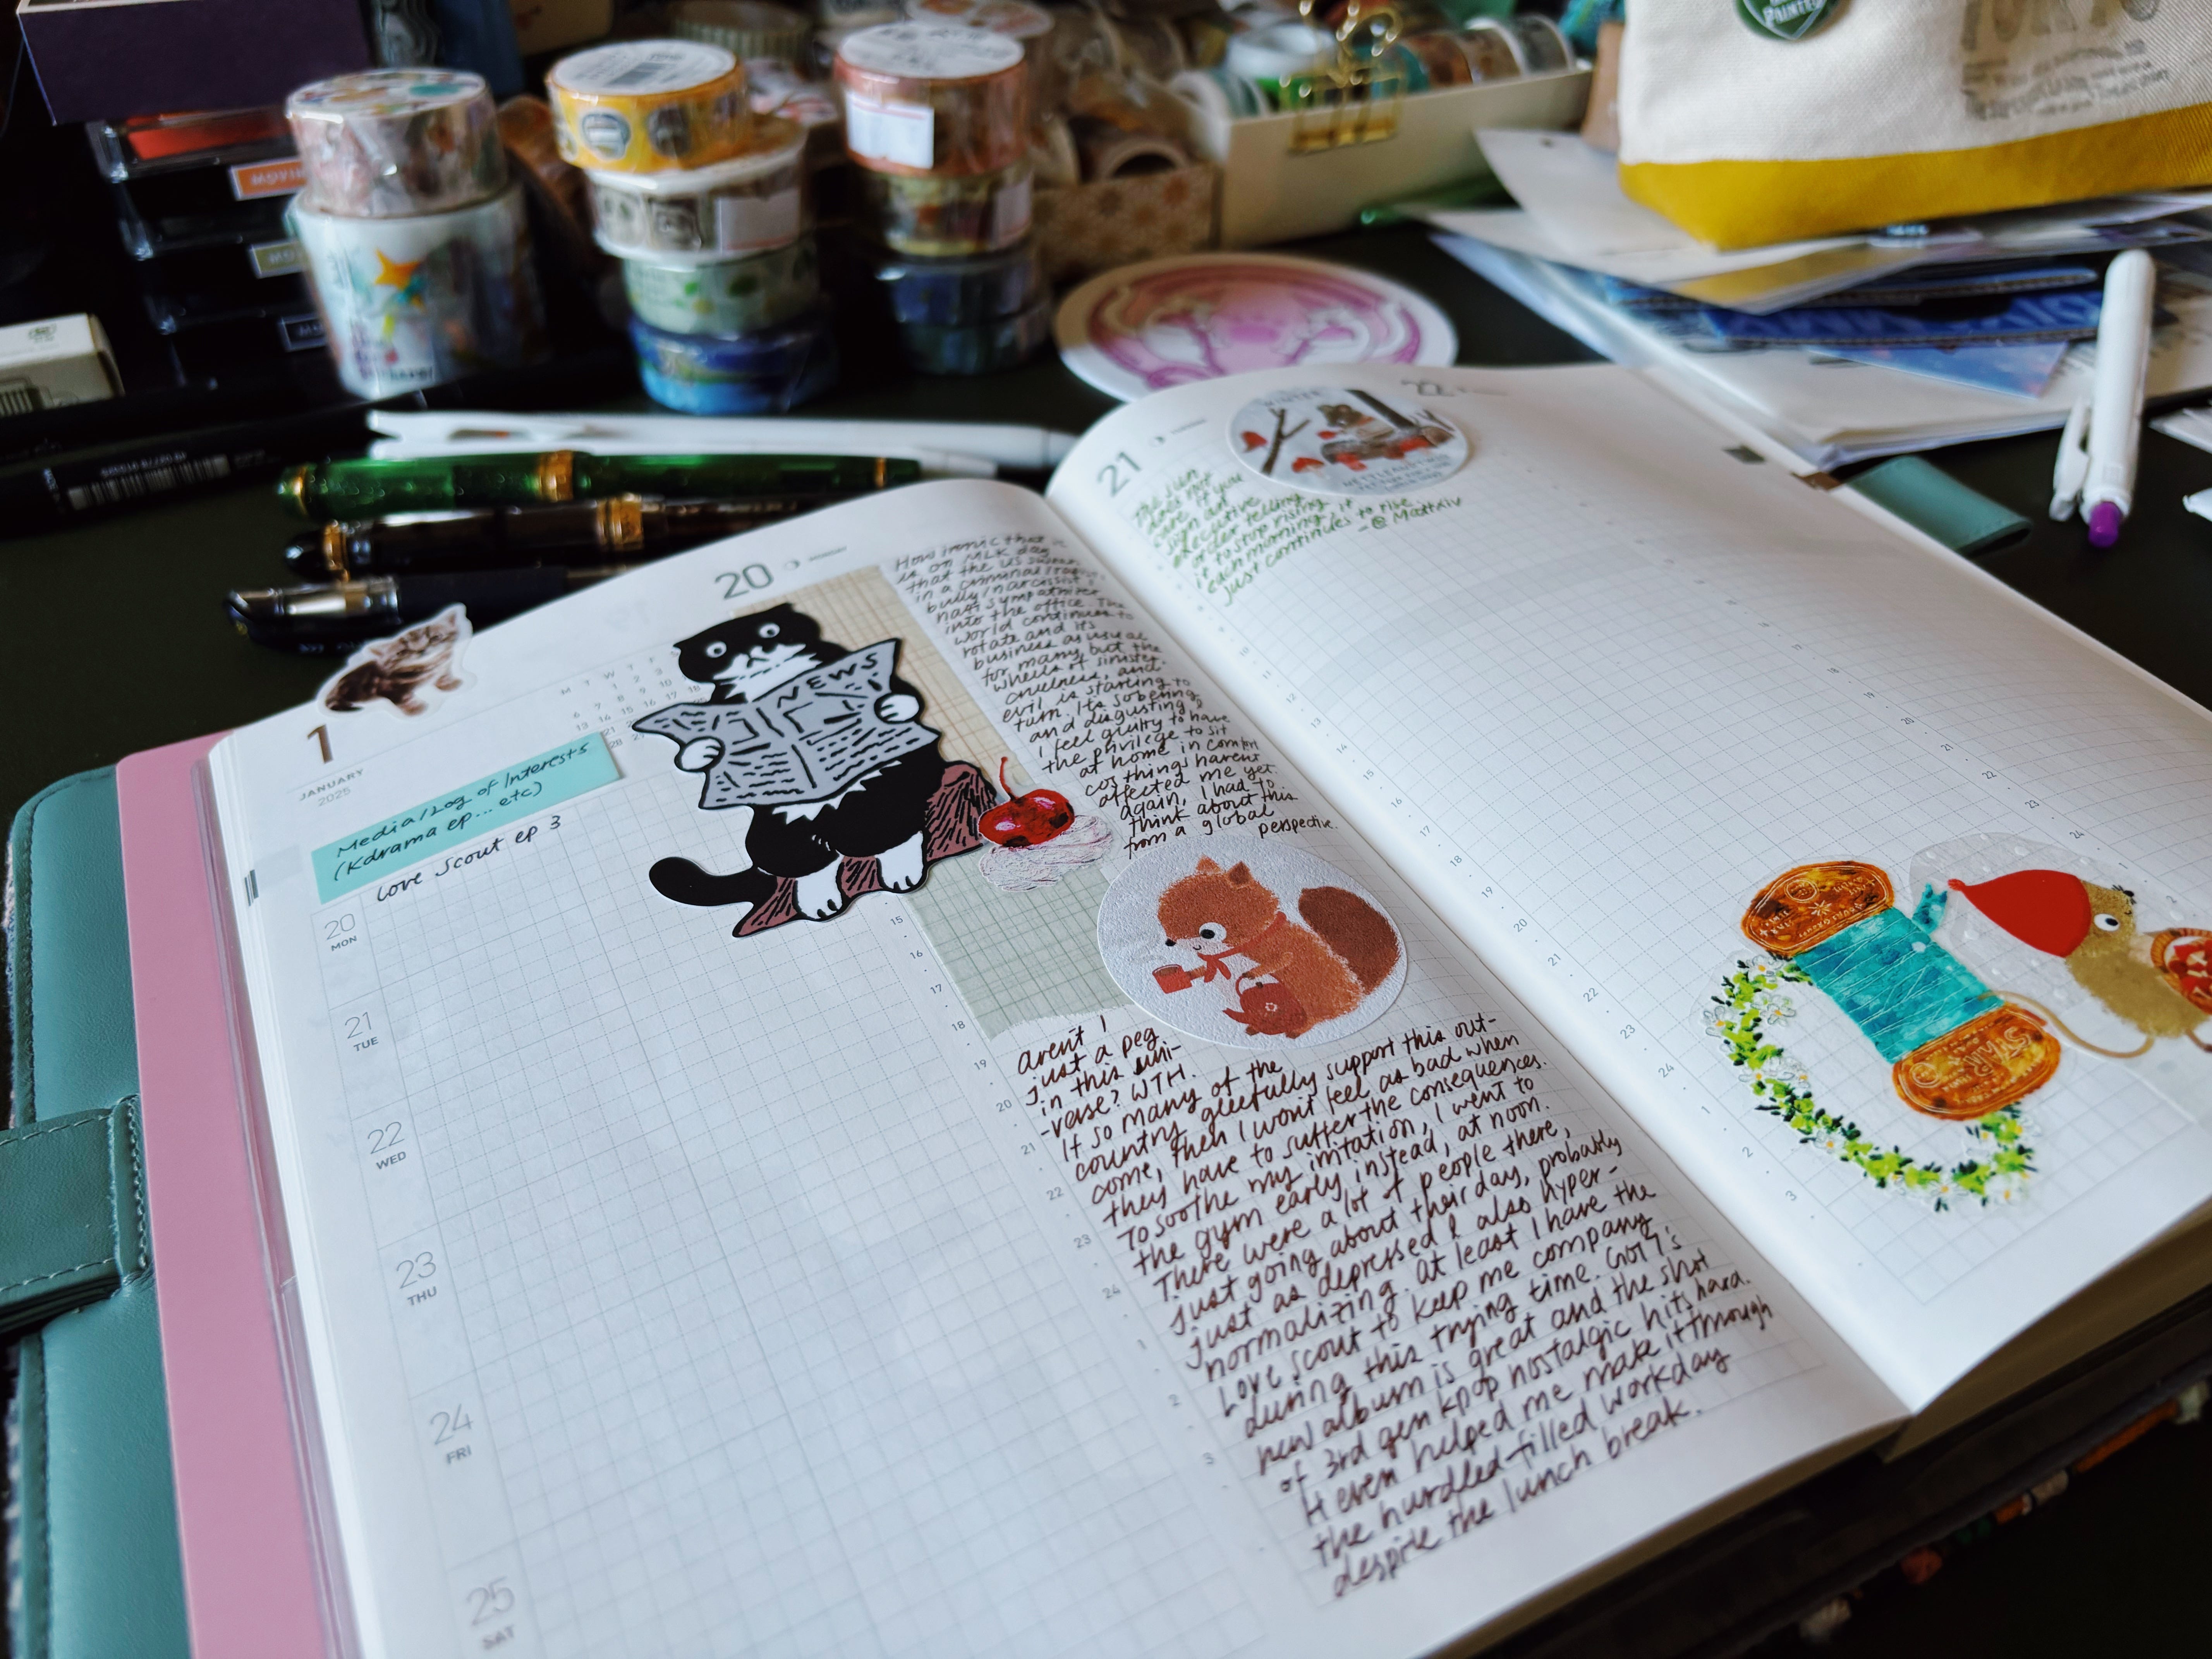 1
JANUARY
2025
M T W T F
1 2 3
6 7 8 9 10
13 14 15 16 17 18
21
28
Media/Log of Interests
(Kdrama ep... etc)
Love Scout ep 3
20
MON
21
TUE
22
WED
23
THU
24
FRI
25
SAT
20
MONDAY
NEWS
How ironic that it
is on MLK day
that the US swears
in a criminal/
bully/narcissist/
nazi sympathizer
into the office. The
world continues to
rotate and its
business as usual
for many but the
wheels of sinister,
cruelness, and
evil is starting to
turn. Its sobering
and disgusting &
I feel guilty to have
the privilege to sit
at home in comfort
cos things havent
affected me yet.
again, I had to
think about this
from a global
perspective.
arent I
just a peg
in this uni-
-verse? WTH.
If so many of the
country gleefully support this out-
come, then I wont feel as bad when
they have to suffer the consequences.
To soothe my irritation, I went to
the gym early instead, at noon.
There were a lot of people there,
just going about their day, probably
just as depressed & also hyper-
normalizing. At least I have the
Love Scout to keep me company
during this trying time. Got7's
new album is great and the shot
of 3rd gen kpop nostalgic hits hard.
It even helped me make it through
the hurdled-filled workday
despite the lunch break.
15
16
17
18
19
20
21
22
23
24
1
2
3
21
The sun
does not
care if you
sign an
executive
order telling
it to stop rising,
each morning, it
just continues to rise
- @Mattxiv
22
11
12
13
14
15
16
17
18
19
20
21
22
23
24
1
2
3
17
18
19
20
21
22
23
24
1
2
STAR